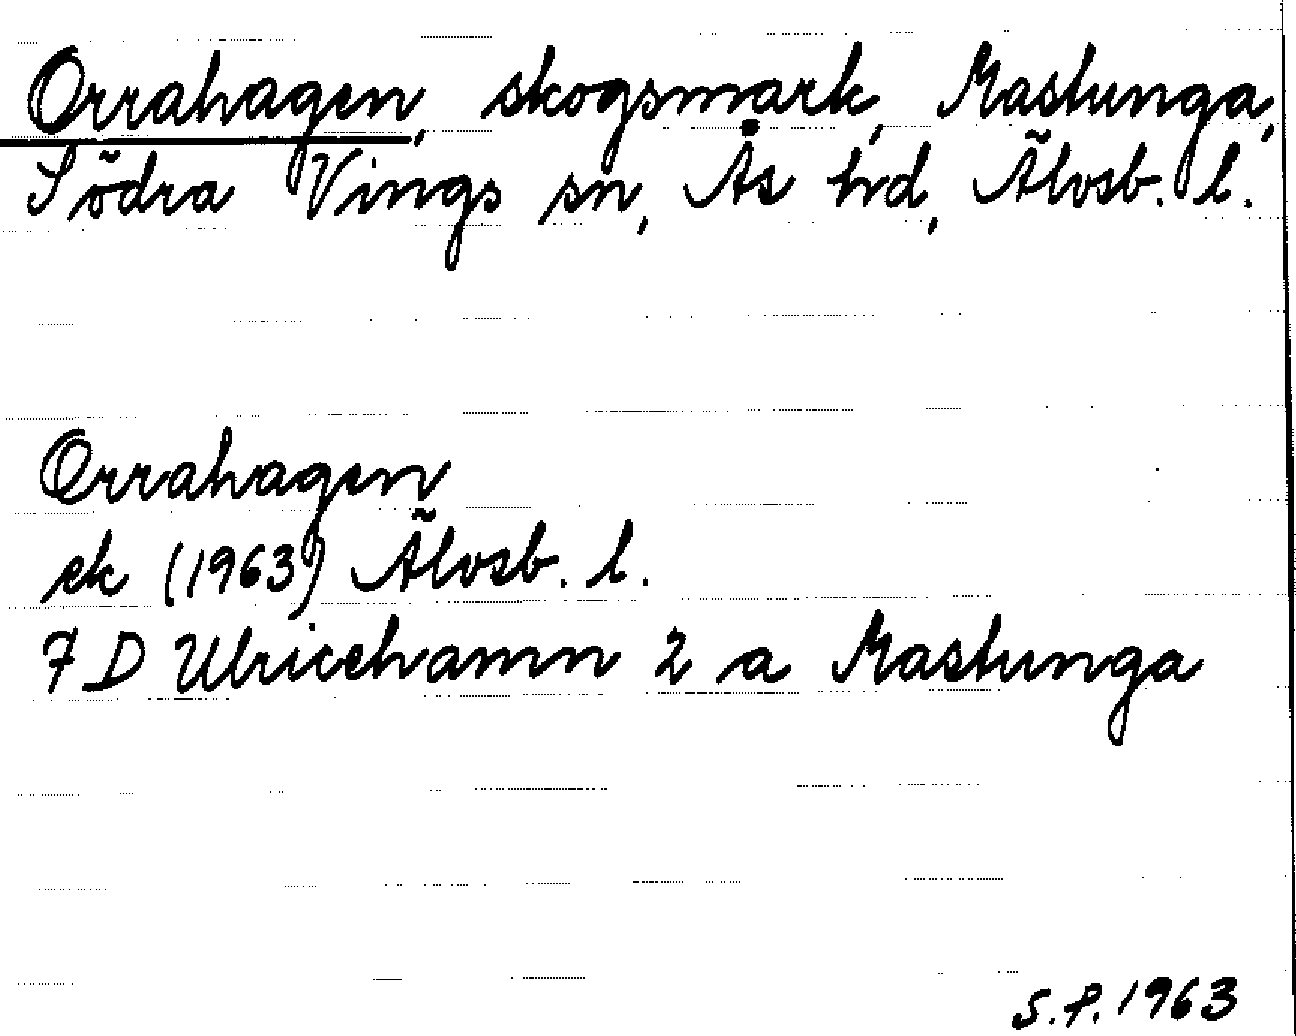 Orrahagen, skogsmark, Maslunga,
Södra Vings sn, Ås hd, Älvsb. l.
Orrahagen
ek (1963) Älvsb. l.
7 D Ulricehamn 2 a Maslunga
S.P. 1963